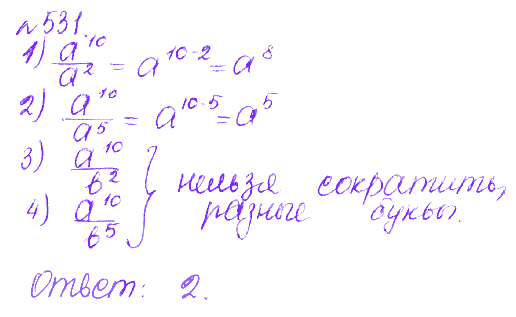 №531.
1) a^10/a^2 = a^10-2 = a^8
2) a^10/a^5 = a^10-5 = a^5
3) a^10/b^2 } нельзя сократить,
4) a^10/b^5 } разные буквы.
Ответ: 2.